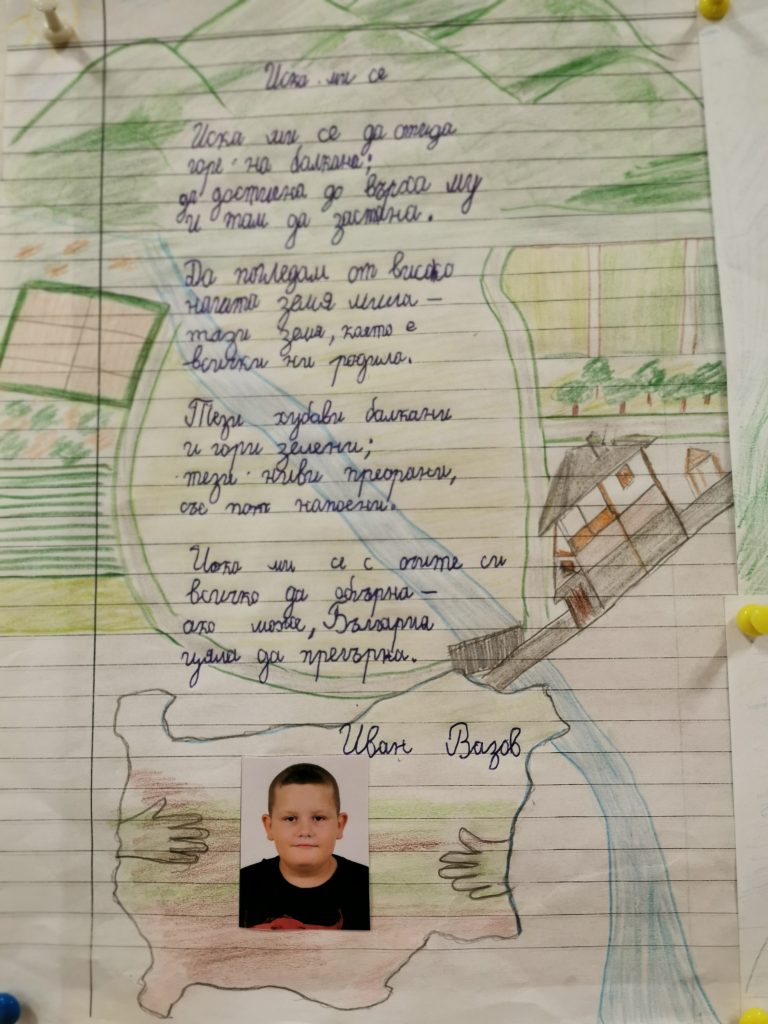 Иска ми се
Иска ми се да отида
горе на балкана;
да достигна до върха му
и там да застана.
Да погледам от високо
нашата земя мила –
тази земя, която е
всички ни родила.
Тези хубави балкани
и гори зелени;
тези ниви преорани,
със пот напоени.
Иска ми се с очите си
всичко да обгърна –
ако може, България
цяла да прегърна.
Иван Вазов